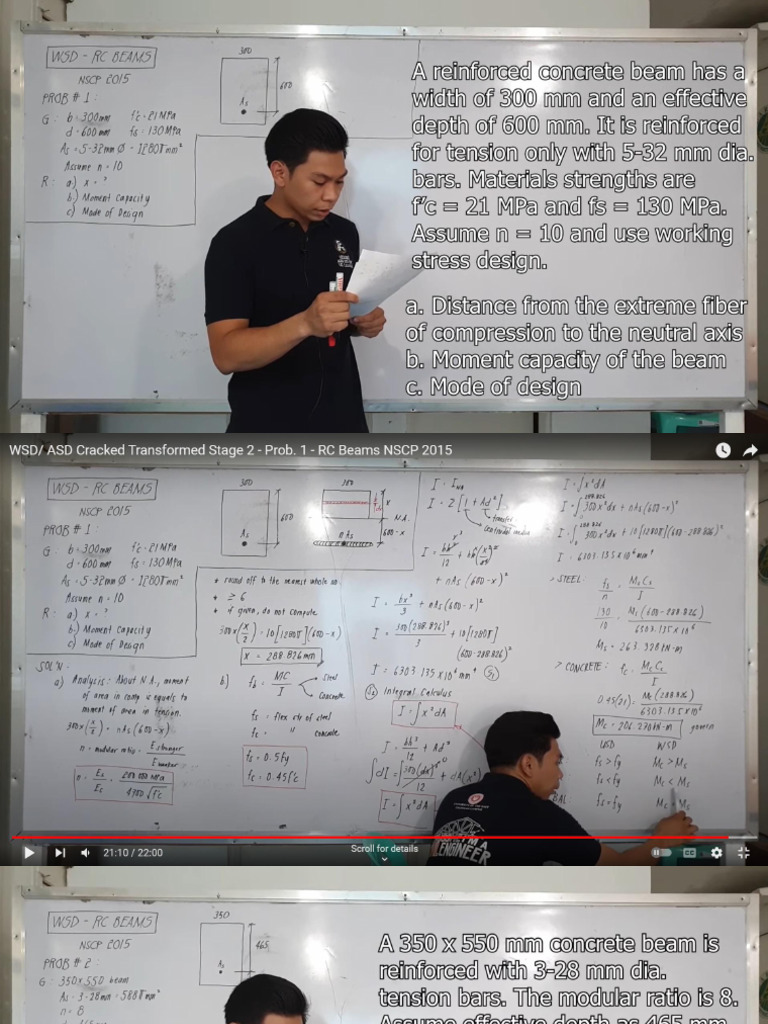 WSD - RC BEAMS
NSCP 2015
PROB # 1 :
G : b = 300mm f'c = 21 MPa
d = 600mm fs = 130 MPa
As = 5-32mm Ø = 1280π mm²
Assume n = 10
R : a) x = ?
b.) Moment Capacity
c.) Mode of Design
300
600
As
A reinforced concrete beam has a
width of 300 mm and an effective
depth of 600 mm. It is reinforced
for tension only with 5-32 mm dia.
bars. Materials strengths are
f'c = 21 MPa and fs = 130 MPa.
Assume n = 10 and use working
stress design.
a. Distance from the extreme fiber
of compression to the neutral axis
b. Moment capacity of the beam
c. Mode of design
WSD/ ASD Cracked Transformed Stage 2 - Prob. 1 - RC Beams NSCP 2015
WSD - RC BEAMS
NSCP 2015
PROB # 1 :
G : b = 300mm f'c = 21MPa
d = 600mm fs = 130 MPa
As = 5-32mm Ø = 1280π mm²
Assume n = 10
R : a) x = ?
b.) Moment Capacity
c.) Mode of Design
SOL'N :
a) Analysis : About N.A., moment
of area in comp is equals to
moment of area in tension.
300x(x/2) = nAs(600-x)
n = modular ratio =
n = Es/Ec = 200 000 MPa / 4700√f'c
300
600
As
N.A.
nAs
600-x
* round off to the nearest whole no.
* ≥ 6
* if given, do not compute
300x(x/2) = 10[1280π](600-x)
x = 288.826mm
b) fb = MC/I
Steel
Concrete
fs = flex str of steel
fc = " concrete
fs = 0.5fy
fc = 0.45f'c
I = INA
I = Σ[I + Ad²]
transfer
centroidal inertia
+ nAs(600-x)²
I = bx³/3 + nAs(600-x)²
I = 300(288.826)³/3 + 10[1280π](600-288.826)²
I = 6303.135x10⁶mm⁴
Integral Calculus
I = ∫x²dA
I = bh³/12 + Ad²
I = ∫x²dA
I = ∫x²dA
I = ∫300x²dx + nAs(600-x)²
I = ∫300x²dx + 10[1280π](600-288.826)²
I = 6303.135x10⁶mm⁴
> STEEL :
fs/n = MsCs/I
130/10 = Ms(600-288.826)/6303.135x10⁶
Ms = 263.328kN-m
> CONCRETE : fc = McCc/I
0.45(21) = Mc(288.826)/6303.135x10⁶
Mc = 206.230kN-m govern
USD WSD
fs > fy Mc > Ms
fs < fy Mc < Ms
BAL fs = fy Mc = Ms
I'M A
ENGINEER
21:10 / 22:00
Scroll for details
CC
WSD - RC BEAMS
NSCP 2015
PROB # 2 :
G : 350x550 beam
As = 3-28mm = 588π mm²
n = 8
350
465
As
A 350 x 550 mm concrete beam is
reinforced with 3-28 mm dia.
tension bars. The modular ratio is 8.
Assume effective depth as 465 mm